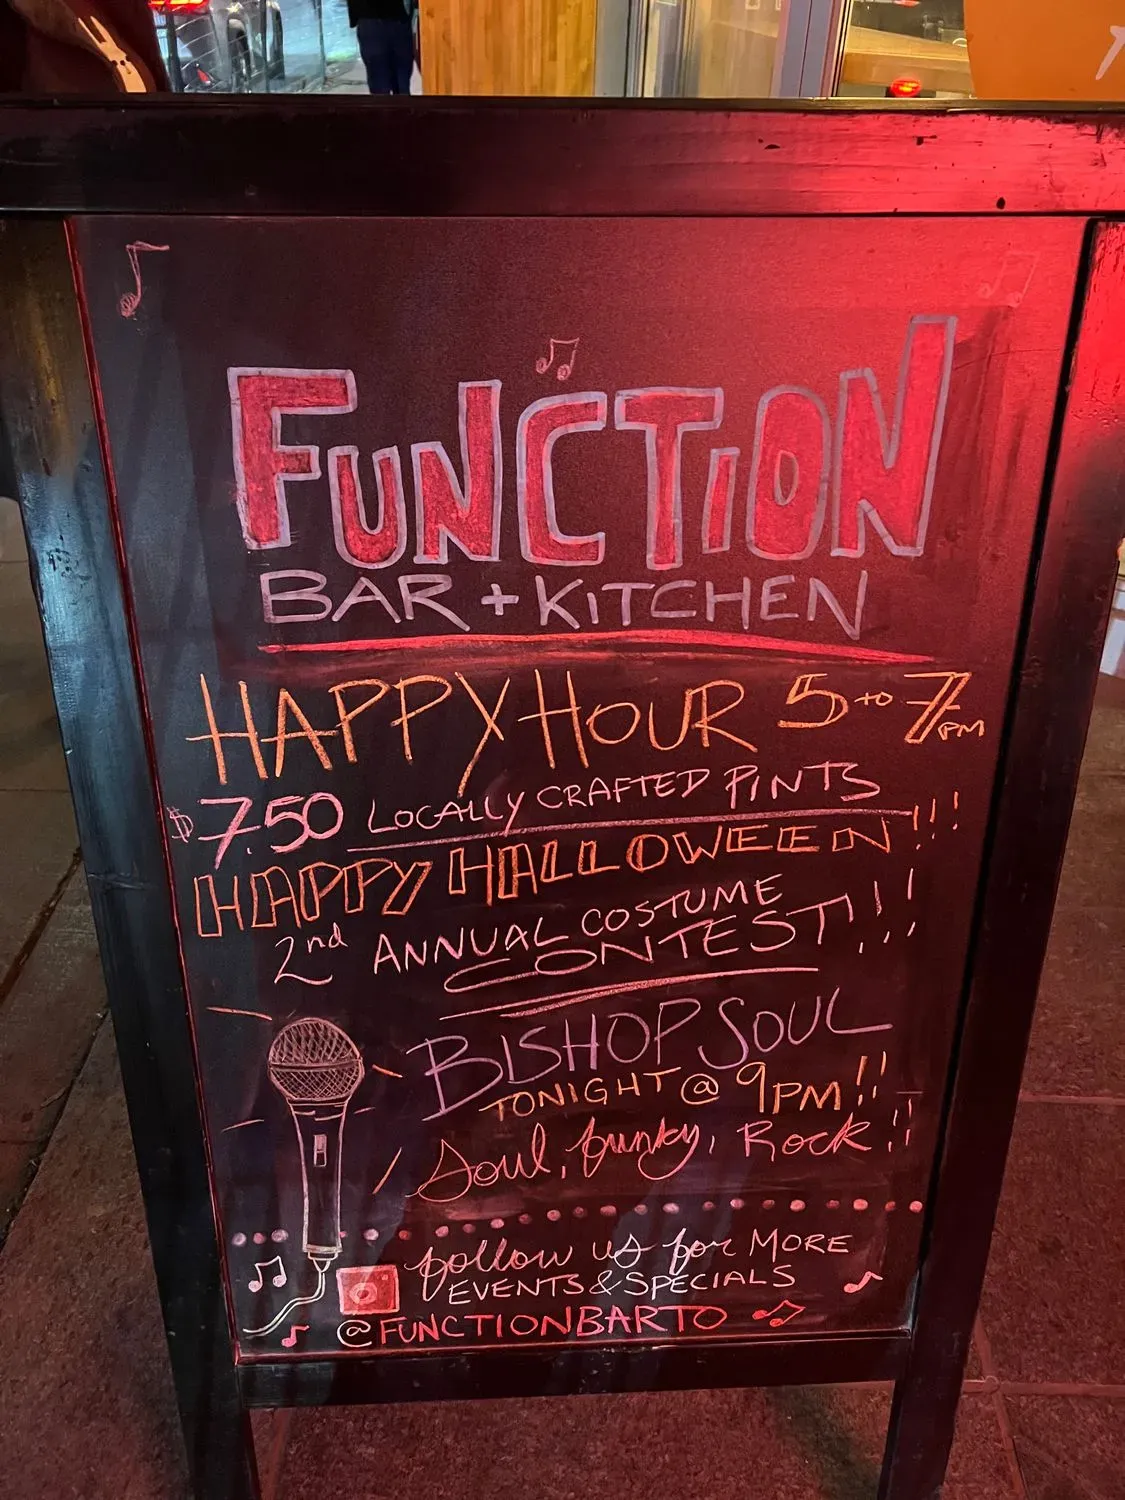 FUNCTION
BAR + KITCHEN
HAPPY HOUR 5 to 7PM
$7.50 LOCALLY CRAFTED PINTS
HAPPY HALLOWEEN!!!
2nd ANNUAL COSTUME
CONTEST!!!
BISHOP SOUL
TONIGHT @ 9PM!!
Soul, funky, Rock!!
follow us for MORE
EVENTS & SPECIALS
@FUNCTIONBARTO